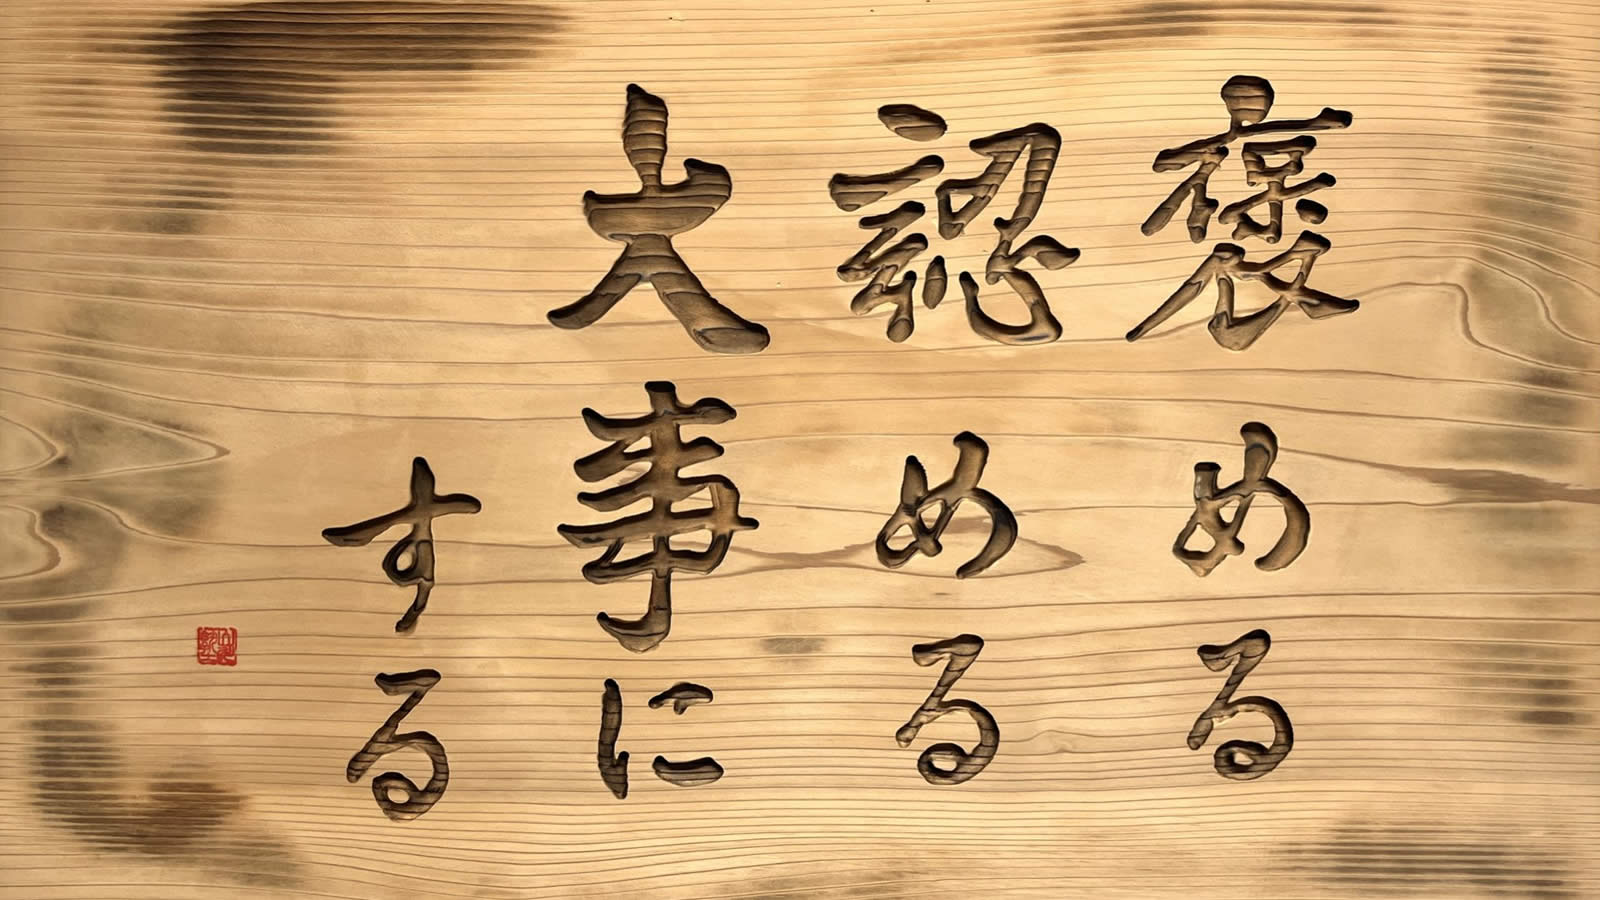 褒める
認める
大事に
する